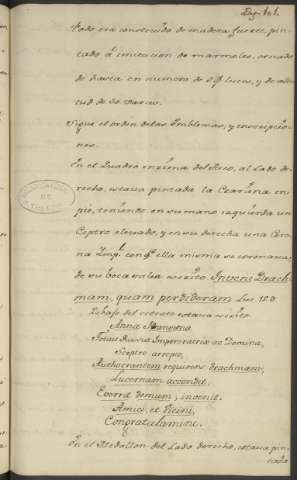 Pag. 161.
Todo era construido de madera fuerte, pin-
tado à imitacion de marmoles, ornado
de hasta en numero de luces, y de alti-
tud de varas.
Sigue el orden de las Emblemas, y inscripcio-
nes.
En el Quadro encima del Arco, al Lado de-
recho, estava pintada la Czarina en
pie, teniendo en su mano izquierda un
Ceptro elevado, y en su derecha una Coro-
na Imp.l con q.e ella misma se coronava;
de su boca salia escrito. Inveni Drach-
mam, quam perdideram Luc 15.9.
Debajo del retrato estava escrito
Anna Iwanowna
Totius Russiæ Imperatrix ac Domina,
Sceptro arrepto,
Authocrantem requirens drachmam,
Lucernam accendit.
Everrit domum, invenit.
Amici, et Vicini,
Congratulamini.
En el Medallon del Lado derecho, estava pin-
tada